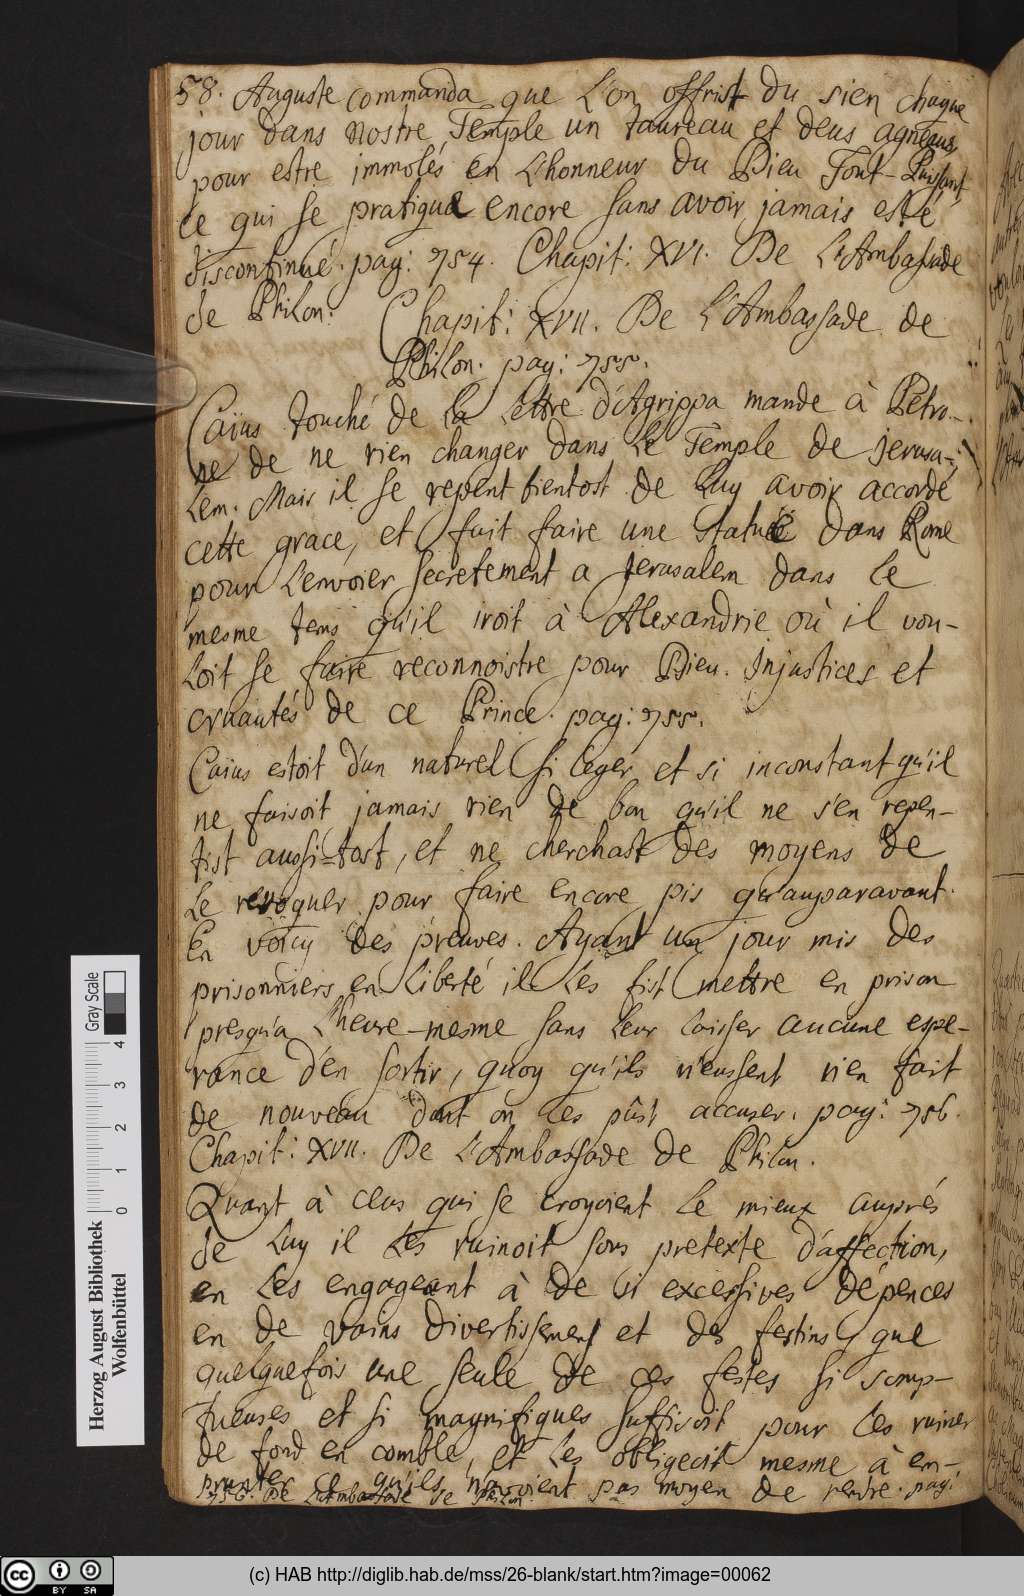 58. Auguste commanda que l'on offrist du sien chaque
jour dans nostre Temple un taureau et deus agneaus
pour estre immolés en l'honneur du Dieu Tout-Puissant
ce qui se pratique encore sans avoir jamais esté
discontinué. pag: 754. Chapit: XVI. De l'Ambassade
de Philon.
Chapit: XVII. De l'Ambassade de
Philon. pag: 755.
Caïus touché de la lettre d'Agrippa mande à Petro-
ne de ne rien changer dans le Temple de jerusa-
lem. Mais il se repent bientost de luy avoir accordé
cette grace, et fait faire une statuë dans Rome
pour l'envoier secretement a Jerusalem dans le
mesme tems qu'il iroit à Alexandrie où il vou-
loit se faire reconnoistre pour Dieu. Injustices et
cruautés de ce Prince. pag: 755.
Caïus estoit d'un naturel si léger et si inconstant qu'il
ne faisoit jamais rien de bon qu'il ne s'en repen-
tist aussi-tost, et ne cherchast des moyens de
le revoquer pour faire encore pis qu'auparavant.
En voicy des préuves. Ayant un jour mis des
prisonniers en liberté il les fist mettre en prison
presqu'a l'heure-mesme sans leur laisser aucune espe-
rance d'en sortir, quoy qu'ils n'eussent rien fait
de nouveau dont on les pûst accuser. pag: 756.
Chapit: XVII. De l'Ambassade de Philon.
Quant à ceus qui se croyoient le mieux auprés
de luy il les ruinoit sous pretexte d'affection,
en les engageant à de si excessives dépences
en de vains divertissemens et des festins que
quelquefois une seule de ces festes si somp-
tueuses et si magnifiques suffisoit pour les ruiner
de fond en comble, et les obligeoit mesme à em-
prunter ce qu'ils n'avoient pas moyen de rendre. pag:
756. De l'Ambassade de Philon.
Herzog August Bibliothek
Wolfenbüttel
0 1 2 3 4
Gray Scale
cc BY SA
(c) HAB http://diglib.hab.de/mss/26-blank/start.htm?image=00062